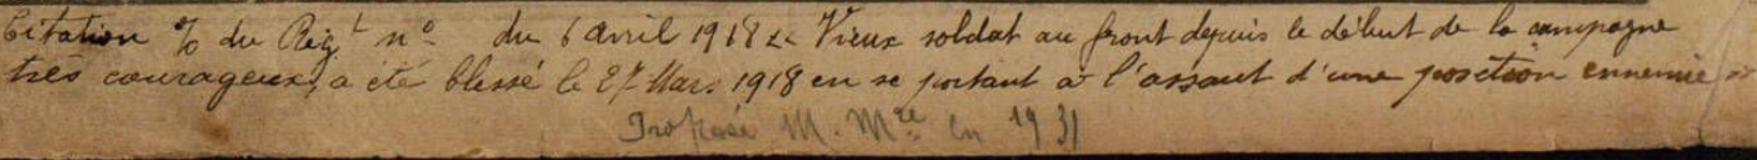 Citation % du Rég^t n° du 6 avril 1918 << Vieux soldat au front depuis le début de la campagne
très courageux, a été blessé le 27 Mars 1918 en se portant à l'assaut d'une position ennemie >>
Proposé M. M^re en 1931